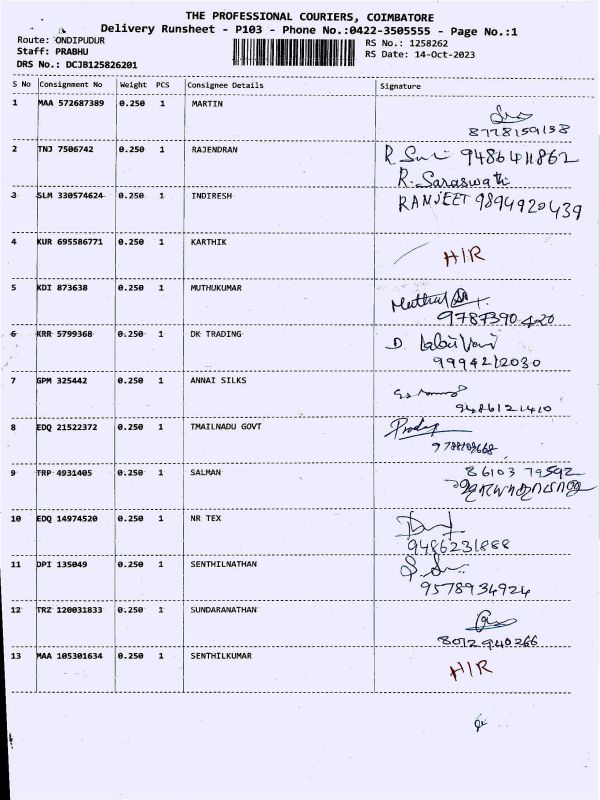 THE PROFESSIONAL COURIERS, COIMBATORE
Delivery Runsheet - P103 - Phone No.:0422-3505555 - Page No.:1
Route: ONDIPUDUR RS No.: 1258262
Staff: PRABHU RS Date: 14-Oct-2023
DRS No.: DCJB125826201
S No Consignment No Weight PCS Consignee Details Signature
1 MAA 572687389 0.250 1 MARTIN
8778159138
2 TNJ 7506742 0.250 1 RAJENDRAN R. 9486411862
R. Saraswathi
3 SLM 330574624 0.250 1 INDIRESH RANJEET 9894920439
4 KUR 695586771 0.250 1 KARTHIK H/R
5 KDI 873638 0.250 1 MUTHUKUMAR
9787390420
6 KRR 5799368 0.250 1 DK TRADING D.
9994212030
7 GPM 325442 0.250 1 ANNAI SILKS
9486121410
8 EDQ 21522372 0.250 1 TMAILNADU GOVT
9 TRP 4931405 0.250 1 SALMAN 86103 79592
10 EDQ 14974520 0.250 1 NR TEX
9486231888
11 DPI 135049 0.250 1 SENTHILNATHAN
9578934924
12 TRZ 120031833 0.250 1 SUNDARANATHAN
8012940266
13 MAA 105301634 0.250 1 SENTHILKUMAR H/R